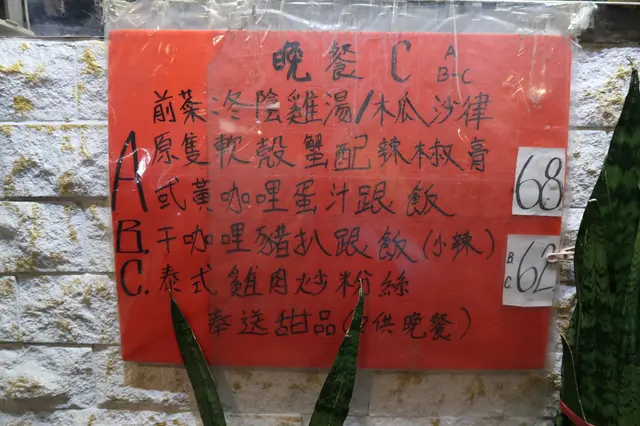 晚餐 C A
B-C
前菜 冬陰雞湯/木瓜沙律
A 原隻軟殼蟹配辣椒膏
或黃咖哩蛋汁跟飯
68
B. 干咖哩豬扒跟飯(小辣)
C. 泰式雞肉炒粉絲
B.
C. 62
奉送甜品( 供晚餐)